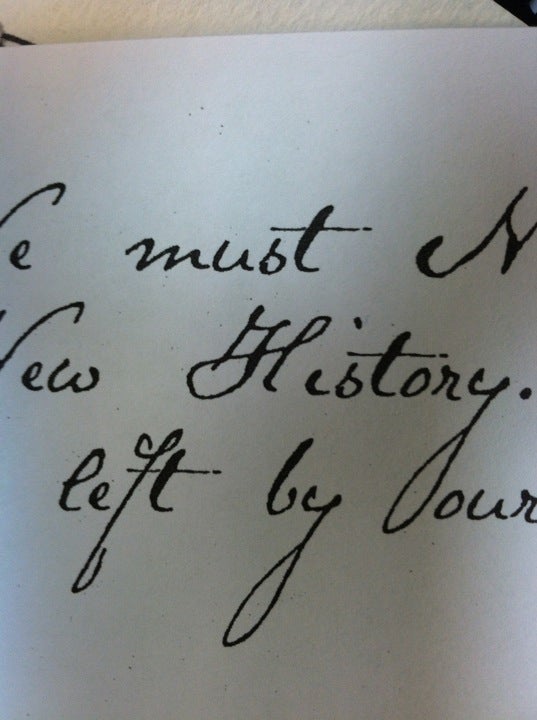 We must N
New History.
left by our